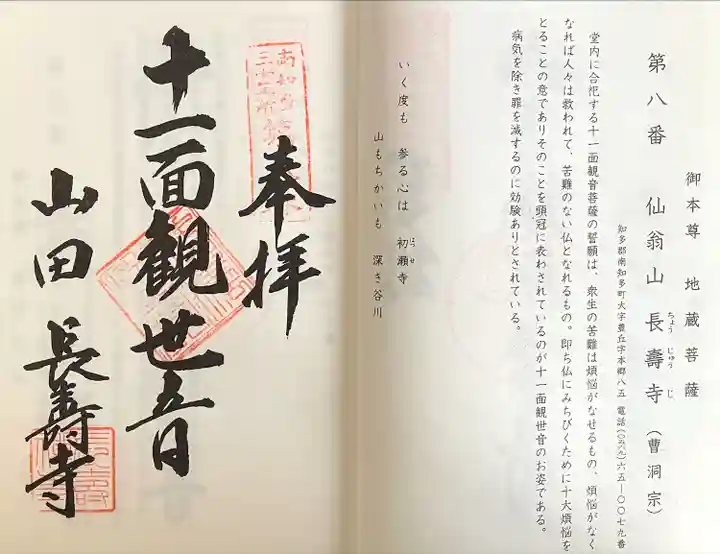 御本尊 地蔵菩薩
第八番 仙翁山 長壽寺（曹洞宗）
ちょう じゅう じ
知多郡南知多町大字豊丘字本郷八五 電話(〇五六九)六五—〇〇七九番
堂内に合祀する十一面観音菩薩の誓願は、衆生の苦難は煩悩がなせるもの、煩悩がなく
なれば人々は救われて、苦難のない仏となれるもの。即ち仏にみちびくために十大煩悩を
とることの意でありそのことを頭冠に表わされているのが十一面観世音のお姿である。
病気を除き罪を滅するのに効験ありとされている。
いく度も 参る心は 初瀬寺
はつせ
山もちかいも 深き谷川
奉拝
十一面観世音
山田 長壽寺